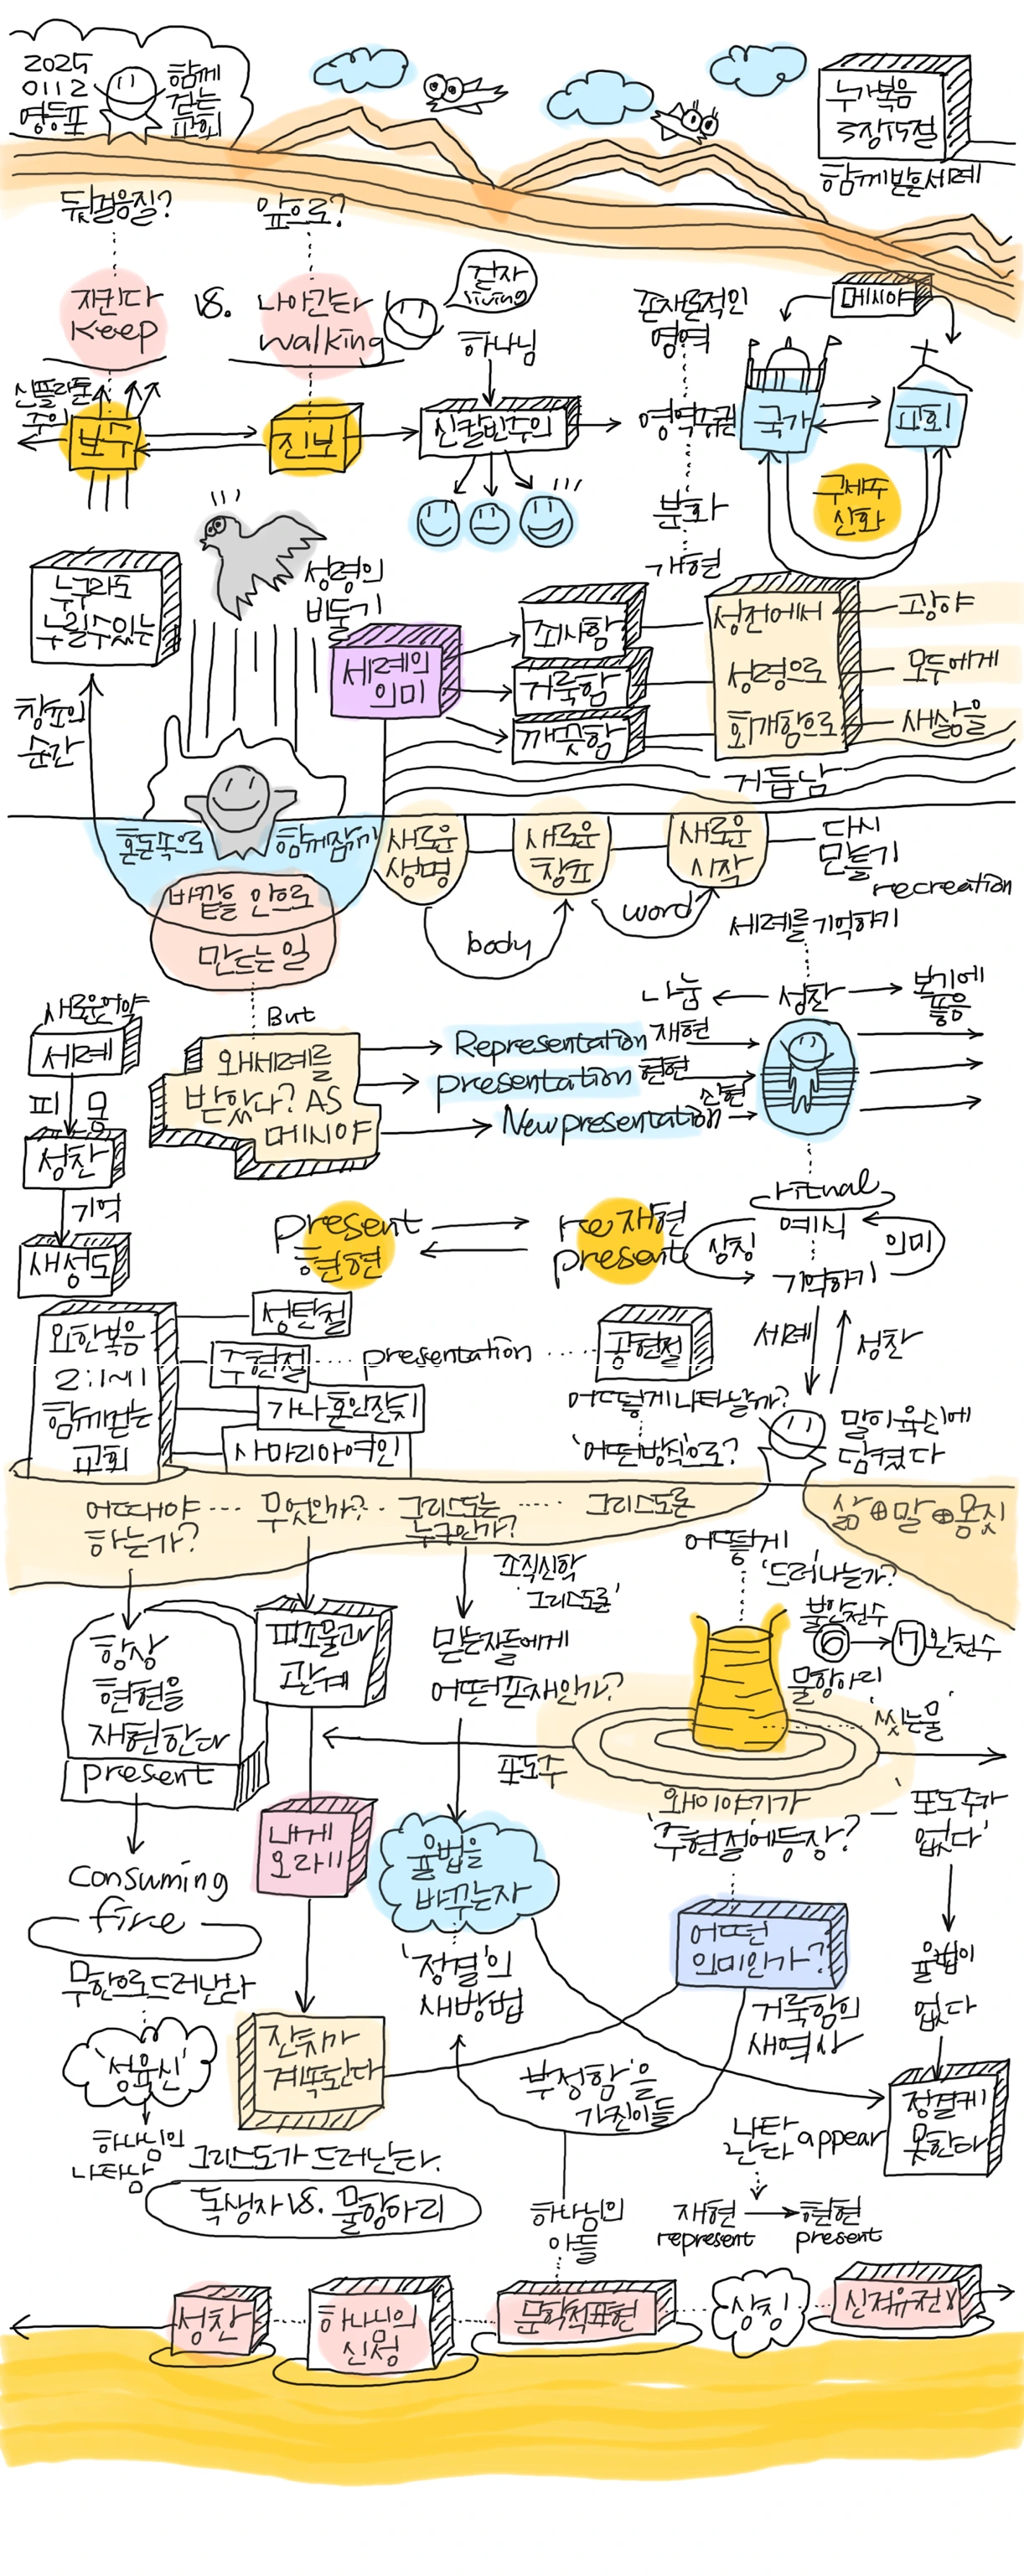 2025
0112
영등포
함께
걷는
교회
누가복음
3장15절
함께받은세례
뒷걸음질?
앞으로?
지킨다
Keep
VS.
나아간다
walking
걷자
living
하나님
존재론적인
영역
메시야
신플라톤
주의
보수
진보
신칼빈주의
영역주권
국가
교회
분화
구세주
신화
개현
누구라도
누릴수있는
성령의
비둘기
세례의
의미
죄사함
거룩함
깨끗함
성전에서
광야
성령으로
모두에게
회개함으로
새삶을
거듭남
창조의
순간
혼돈속으로
함께잠기기
새로운
생명
새로운
창조
새로운
시작
다시
만들기
recreation
바깥을 안으로
만드는일
body
word
세례를 기억하기
But
나눔
성찬
보기에
좋음
새로운언약
세례
피
몸
성찬
기억
새성도
왜세례를
받았나? AS
메시야
Representation 재현
presentation 현현
New presentation
신현
ritual
예식
상징
의미
기억하기
present
현현
re 재현
present
세례
성찬
요한복음
2:1~11
함께걷는
교회
성탄절
주현절
presentation
공현절
가나혼인잔치
사마리아여인
어떻게나타날까?
'어떤방식으로?
말이육신에
담겼다
어때야
하는가?
무엇인가?
그리스도는
누구인가?
그리스도론
삶⊕말⊕몸짓
조직신학
'그리스도론'
어떻게
'드러나는가?
불완전수
6
7
완전수
물항아리
'씻는물'
항상
현현을
재현한다
present
피조물과
관계
믿는자들에게
어떤존재인가?
포도주
왜이야기가
'주현절에등장?
'포도주가
없다'
내게
오라!!
율법을
바꾸는자
consuming
fire
무한으로드러난다
어떤
의미인가?
율법이
없다
'정결'의
새방법
거룩함의
새역사
'성육신'
잔치가
계속된다
부정함'을
가진이들
정결케
못한다
하나님의
나타남
그리스도가 드러난다.
나타
난다
appear
독생자 VS. 물항아리
하나님의
아들
재현
represent
현현
present
성찬
하나님의
신성
문학적표현
상징
신적유전X